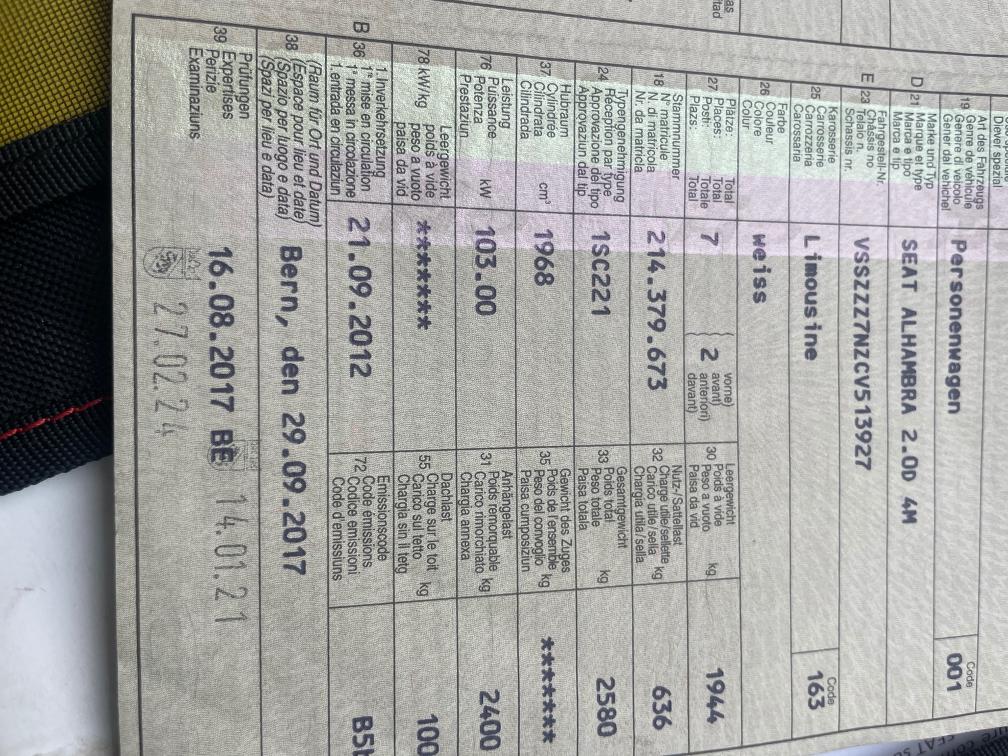 19 Art des Fahrzeugs
Genre de véhicule
Genere di veicolo
Gener dal vehichel
Personenwagen
Code
001
D 21 Marke und Typ
Marque et type
Marca e tipo
Marca e tip
SEAT ALHAMBRA 2.0D 4M
E 23 Fahrgestell-Nr.
Châssis no
Telaio n.
Schassis nr.
VSSZZZ7NZCV513927
25 Karosserie
Carrosserie
Carrozzeria
Carossaria
Limousine
Code
163
26 Farbe
Couleur
Colore
Colur
weiss
27 Plätze: Total
Places: Total
Posti: Totale
Plazs: Total
7
2
vorne)
avant)
anteriori)
davant)
30 Leergewicht
Poids à vide
Peso a vuoto
Paisa da vid kg
1944
18 Stammnummer
N° matricule
N. di matricola
Nr. da matricla
214.379.673
32 Nutz-/Sattellast
Charge utile/sellette
Carico utile/sella kg
Chargia utila/sella
636
24 Typengenehmigung
Réception par type
Approvazione del tipo
Approvaziun dal tip
1SC221
33 Gesamtgewicht
Poids total
Peso totale kg
Paisa totala
2580
37 Hubraum
Cylindrée
Cilindrata cm³
Cilindrada
1968
35 Gewicht des Zuges
Poids de l'ensemble kg
Peso del convoglio
Paisa cumposiziun
******
76 Leistung
Puissance
Potenza kW
Prestaziun
103.00
31 Anhängelast
Poids remorquable kg
Carico rimorchiato
Chargia annexa
2400
78 kW/kg Leergewicht
poids à vide
peso a vuoto
paisa da vid
*******
55 Dachlast
Charge sur le toit kg
Carico sul tetto
Chargia sin il tetg
100
B 36 1. Inverkehrsetzung
1re mise en circulation
1a messa in circolazione
1. entrada en circulaziun
21.09.2012
72 Emissionscode
Code émissions
Codice emissioni
Code d'emissiuns
38 (Raum für Ort und Datum)
(Espace pour lieu et date)
(Spazio per luogo e data)
(Spazi per lieu e data)
Bern, den 29.09.2017
39 Prüfungen
Expertises
Perizie
Examinaziuns
16.08.2017 BE
14.01.21
27.02.24